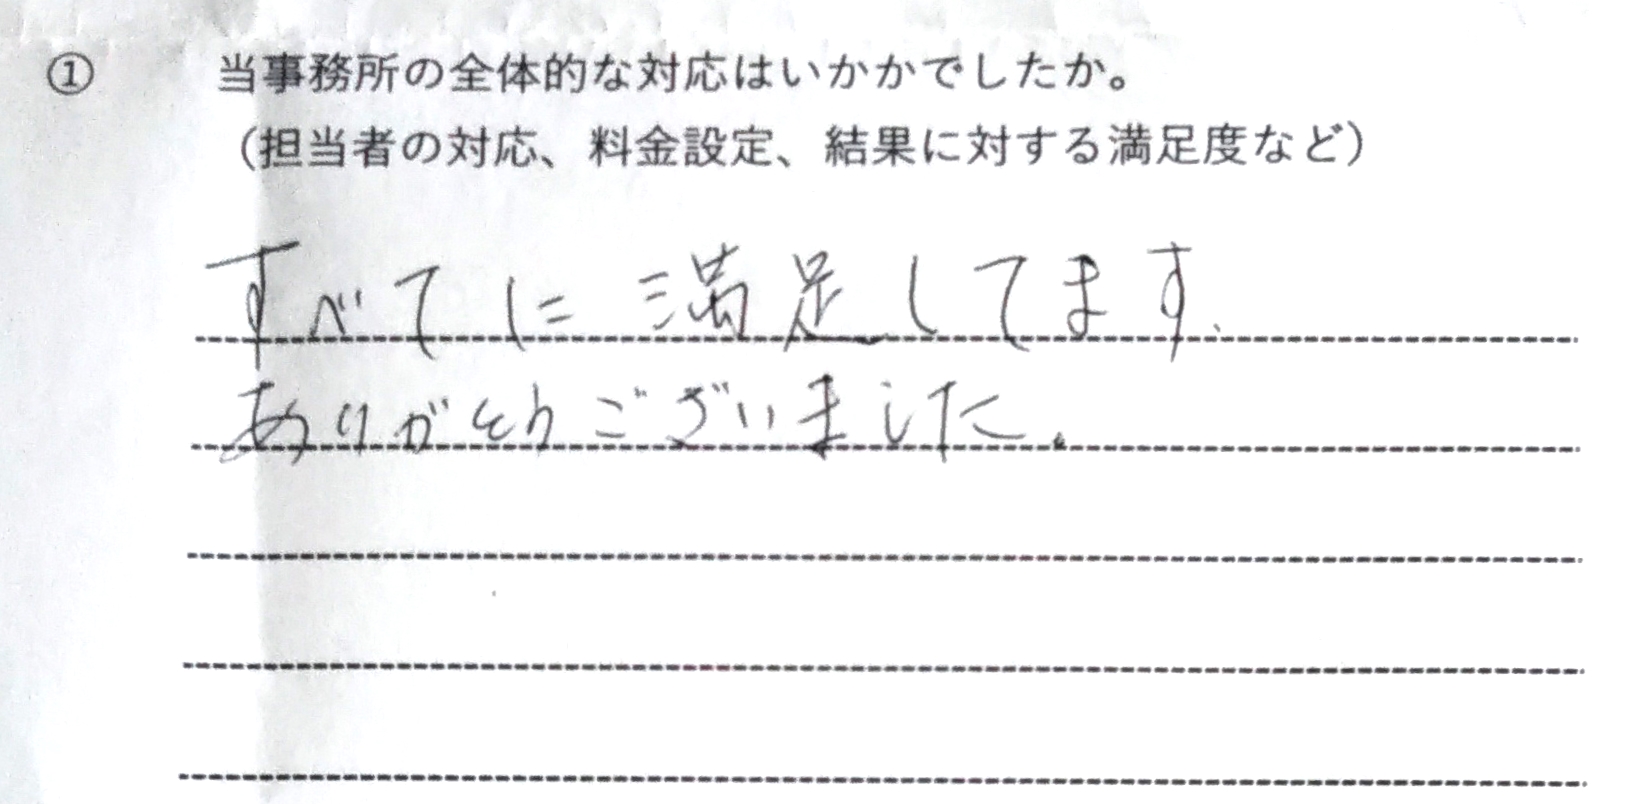 ① 当事務所の全体的な対応はいかかでしたか。
（担当者の対応、料金設定、結果に対する満足度など）
すべてに満足してます.
ありがとうございました。